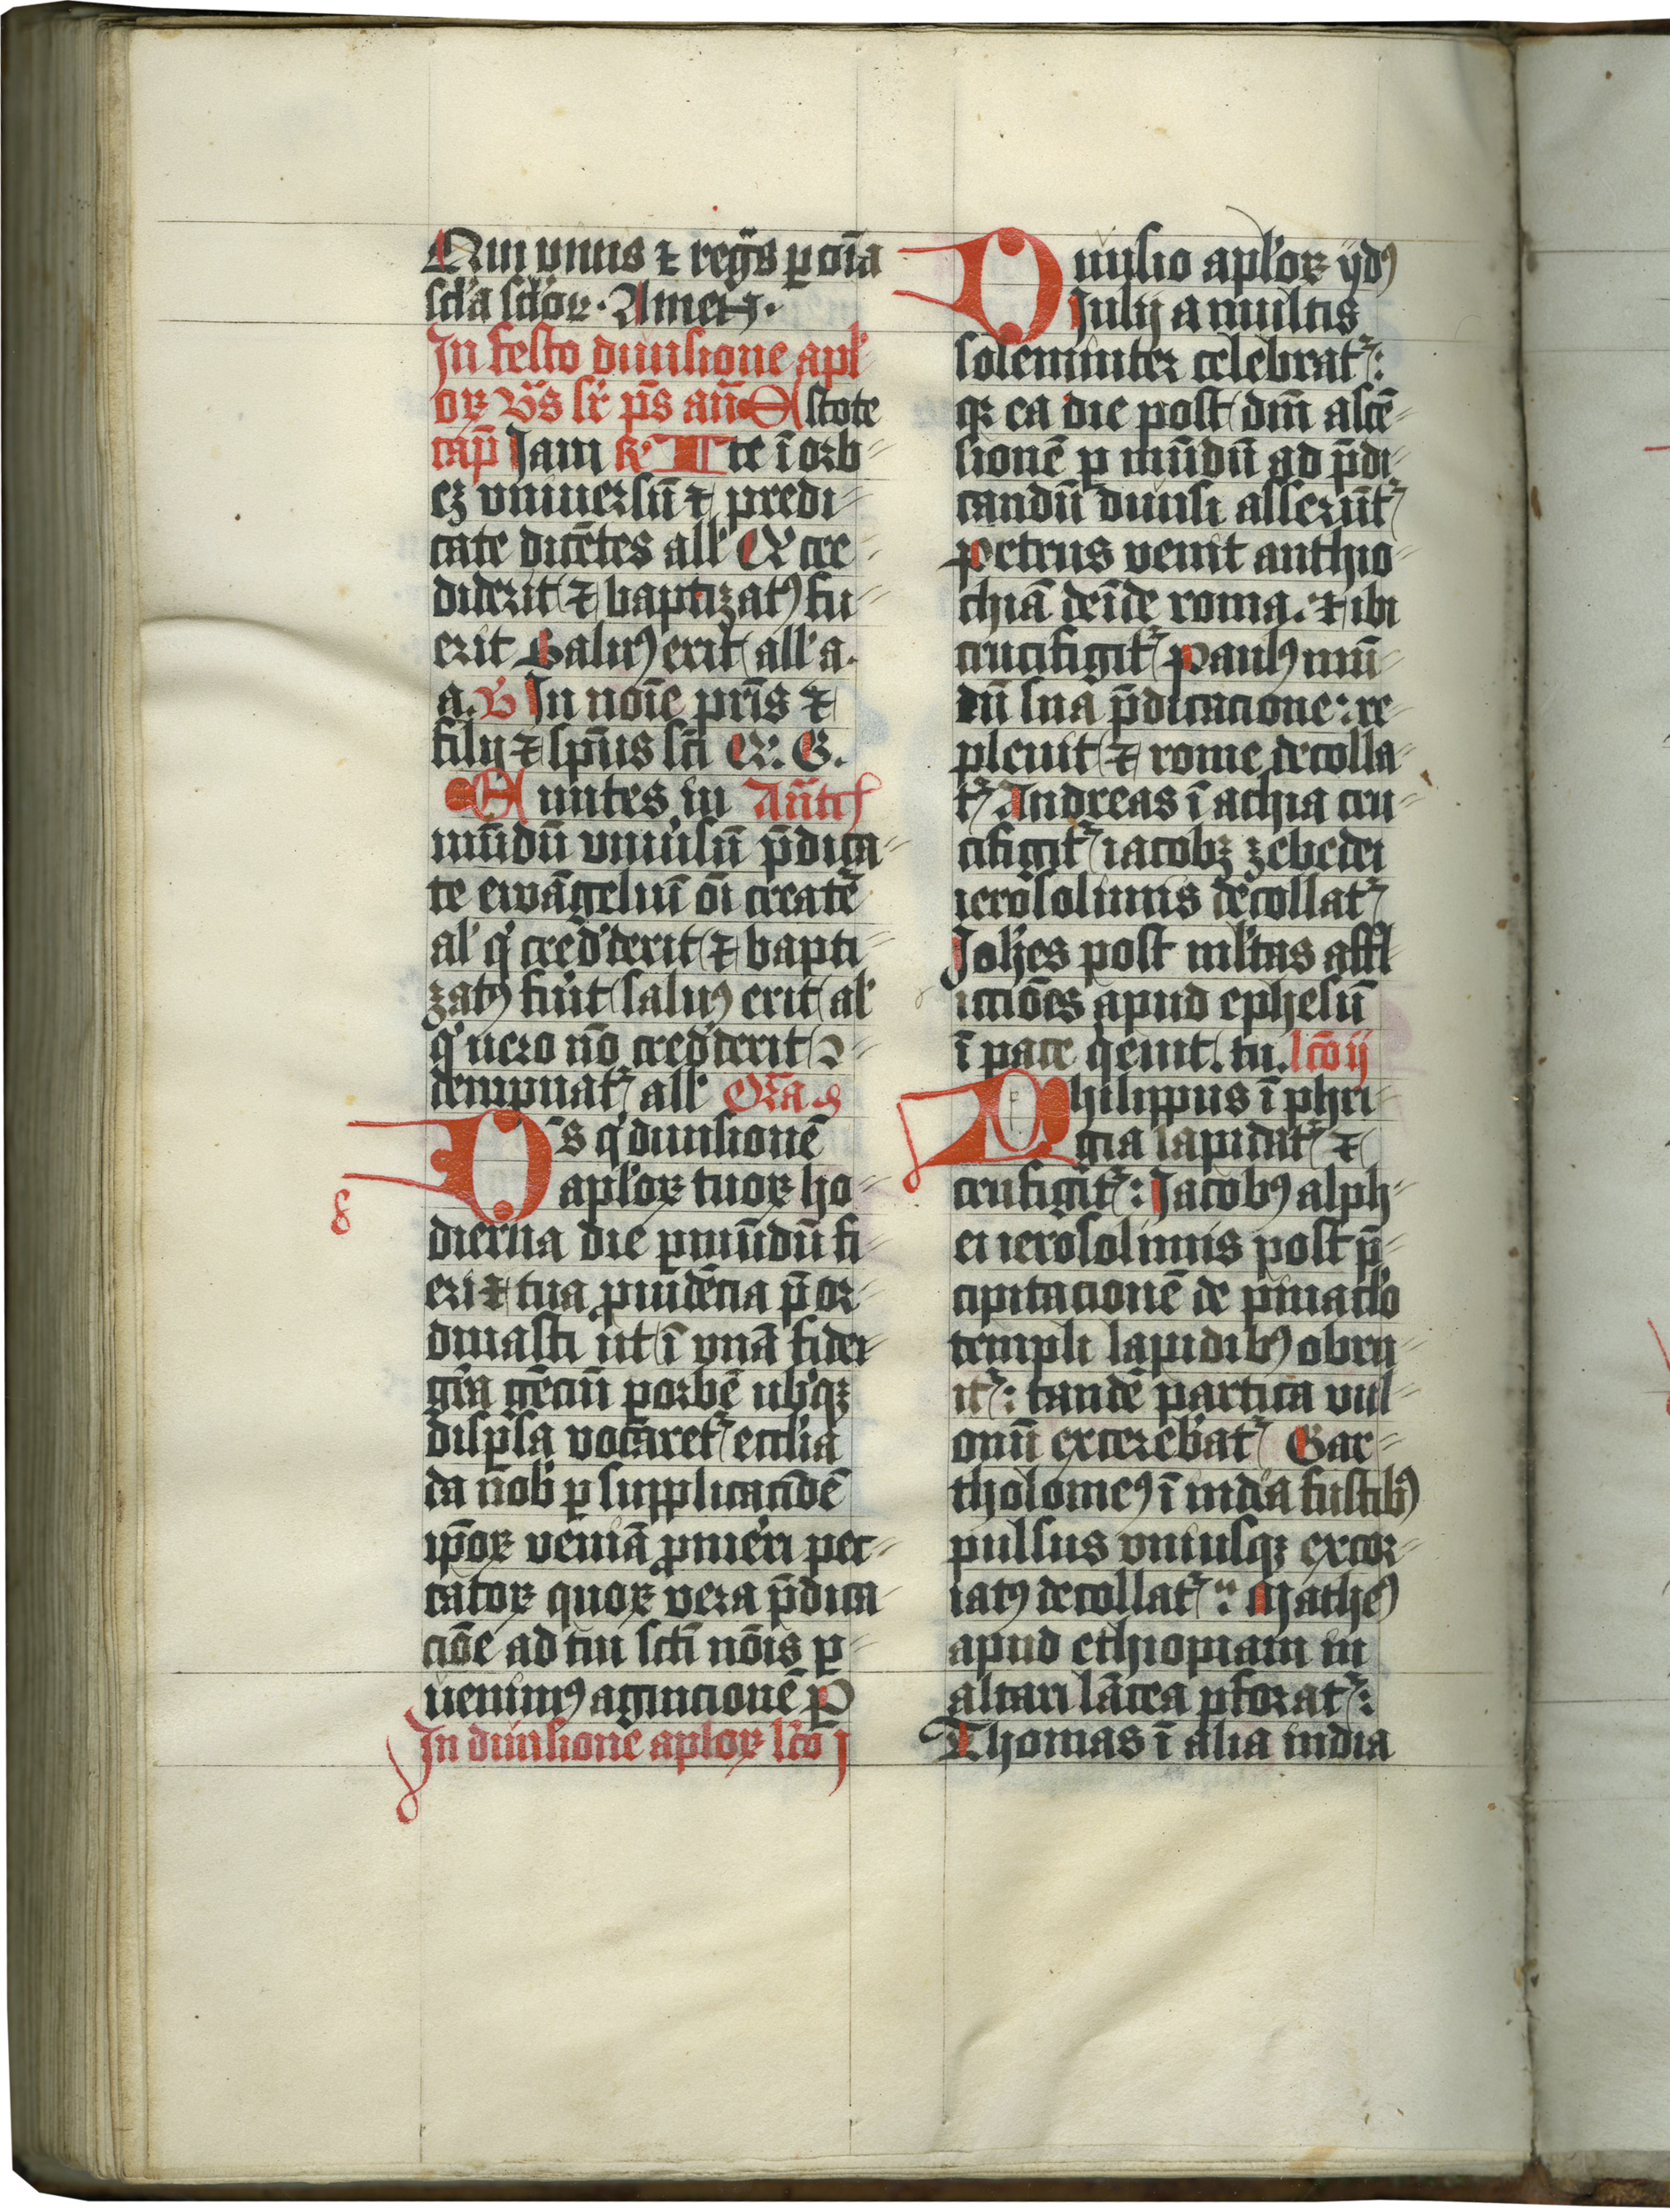 Qui viuis ⁊ regͣs ꝑ oīa
scl'a scl'oꝝ. Amen.
In festo diuisione apl'
oꝝ Vs̄ sr̄ ps̄ an̄ Estote
cap̄ Iam R' Ite ī orb
eʒ vniuersū ⁊ predi
cate dicētes all' Q cre
diderit ⁊ baptizatꝰ fu
erit Saluꝰ erit all' a.
a. V In noīe pr̄is ⁊
filij ⁊ sp̄us scī Q. G.
Euntes in Ant̄
mūdū vniu'sū p̄dica
te ewāgeliū oī creatē
al' q' cred'derit ⁊ bapti
zatꝰ fu'it saluꝰ erit al'
q' uero nō cred'derit ↄ
dempnat' all' Or̄a
Ds̄ q' diuisionē
apl'oꝝ tuoꝝ ho
dierna die ꝑ mūdū fi
eri ⁊ tua ꝓuidēcia p̄or
dinasti ut ī vnā fidei
gr̄a gēciū ꝑ orbē ub'qꝫ
disp̄sa vocaret' eccl'ia
da nob' ꝑ supplicacōē
ip̄oꝝ veniā ꝓmer'i pec
catoꝝ quoꝝ vera p̄dica
ciōe ad tui sct̄i nōīs ꝑ
uenimꝰ agnicionē P
In diuisione apl'oꝝ lc̄o j
8
Diuisio apl'oꝝ ydꝰ
Iulij a multis
solemniter celebrat':
qꝛ ea die post dn̄i ascē
sionē ꝑ mūdū ad p̄di
candū diuisi asserūt'
Petrus venit anthio
chiā deīde roma. ⁊ ibi
crucifigit' Paulꝰ mū
dū sua p̄dicacione: re
pleuit ⁊ rome decolla
t' Andreas ī achia cru
cifigit' iacobꝫ zebedei
ierosolimis decollat'
Ioh'es post ml'tas affl
icciōes apud ephesū
ī pace q'euit. tu. lc̄o ij
Philippus ī phri
gia lapidat' ⁊
crufigit': Iacobꝰ alph
ei ierosolimis post p̄
cipitacionē de pinacl'o
templi lapidibꝰ obru
it': tandē partica vul
onū excerebat' Bar
tholomeꝰ ī india fustibꝰ
pulsus vniusqꝫ excor
iatꝰ decollat': Matheꝰ
apud ethiopiam in
altari lācea ꝑforat':
Thomas ī alia india